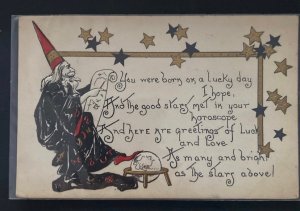 You were born on a lucky day
I hope,
And the good stars met in your
horoscope
And here are greetings of Luck
and Love
As many and bright
as the stars above!